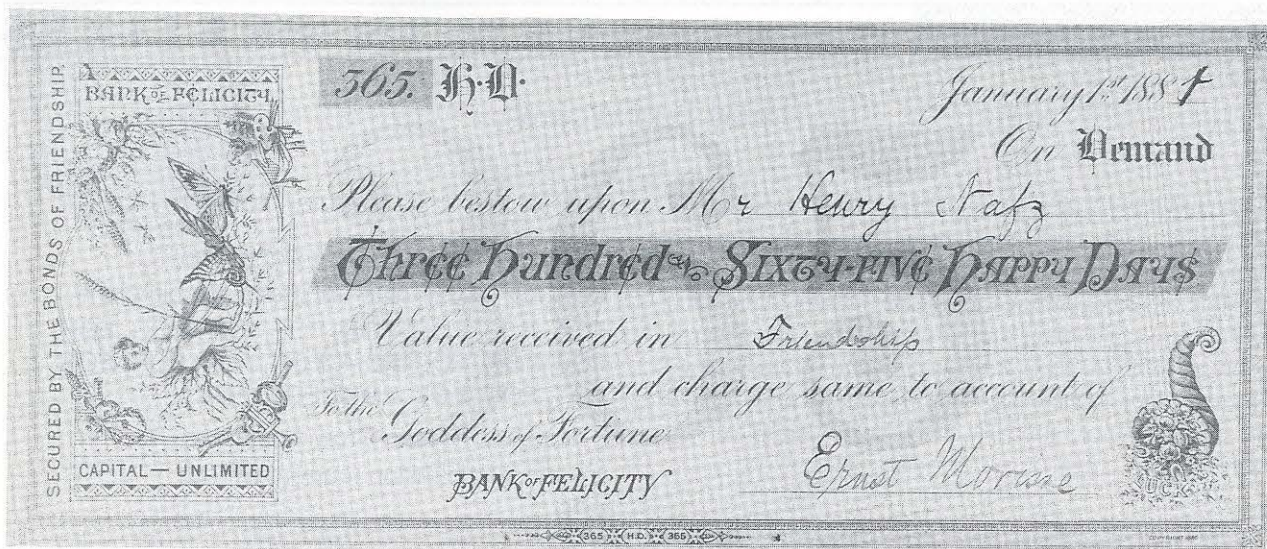 SECURED BY THE BONDS OF FRIENDSHIP.
BANK OF FELICITY
CAPITAL — UNLIMITED
365. H.D.
January 1st 1884
On Demand
Please bestow upon Mr Henry Nafz
Three Hundred and Sixty-Five Happy Days
Value received in Friendship
and charge same to account of
To the Goddess of Fortune
BANK OF FELICITY
Ernst
LUCK
365 H.D. 365